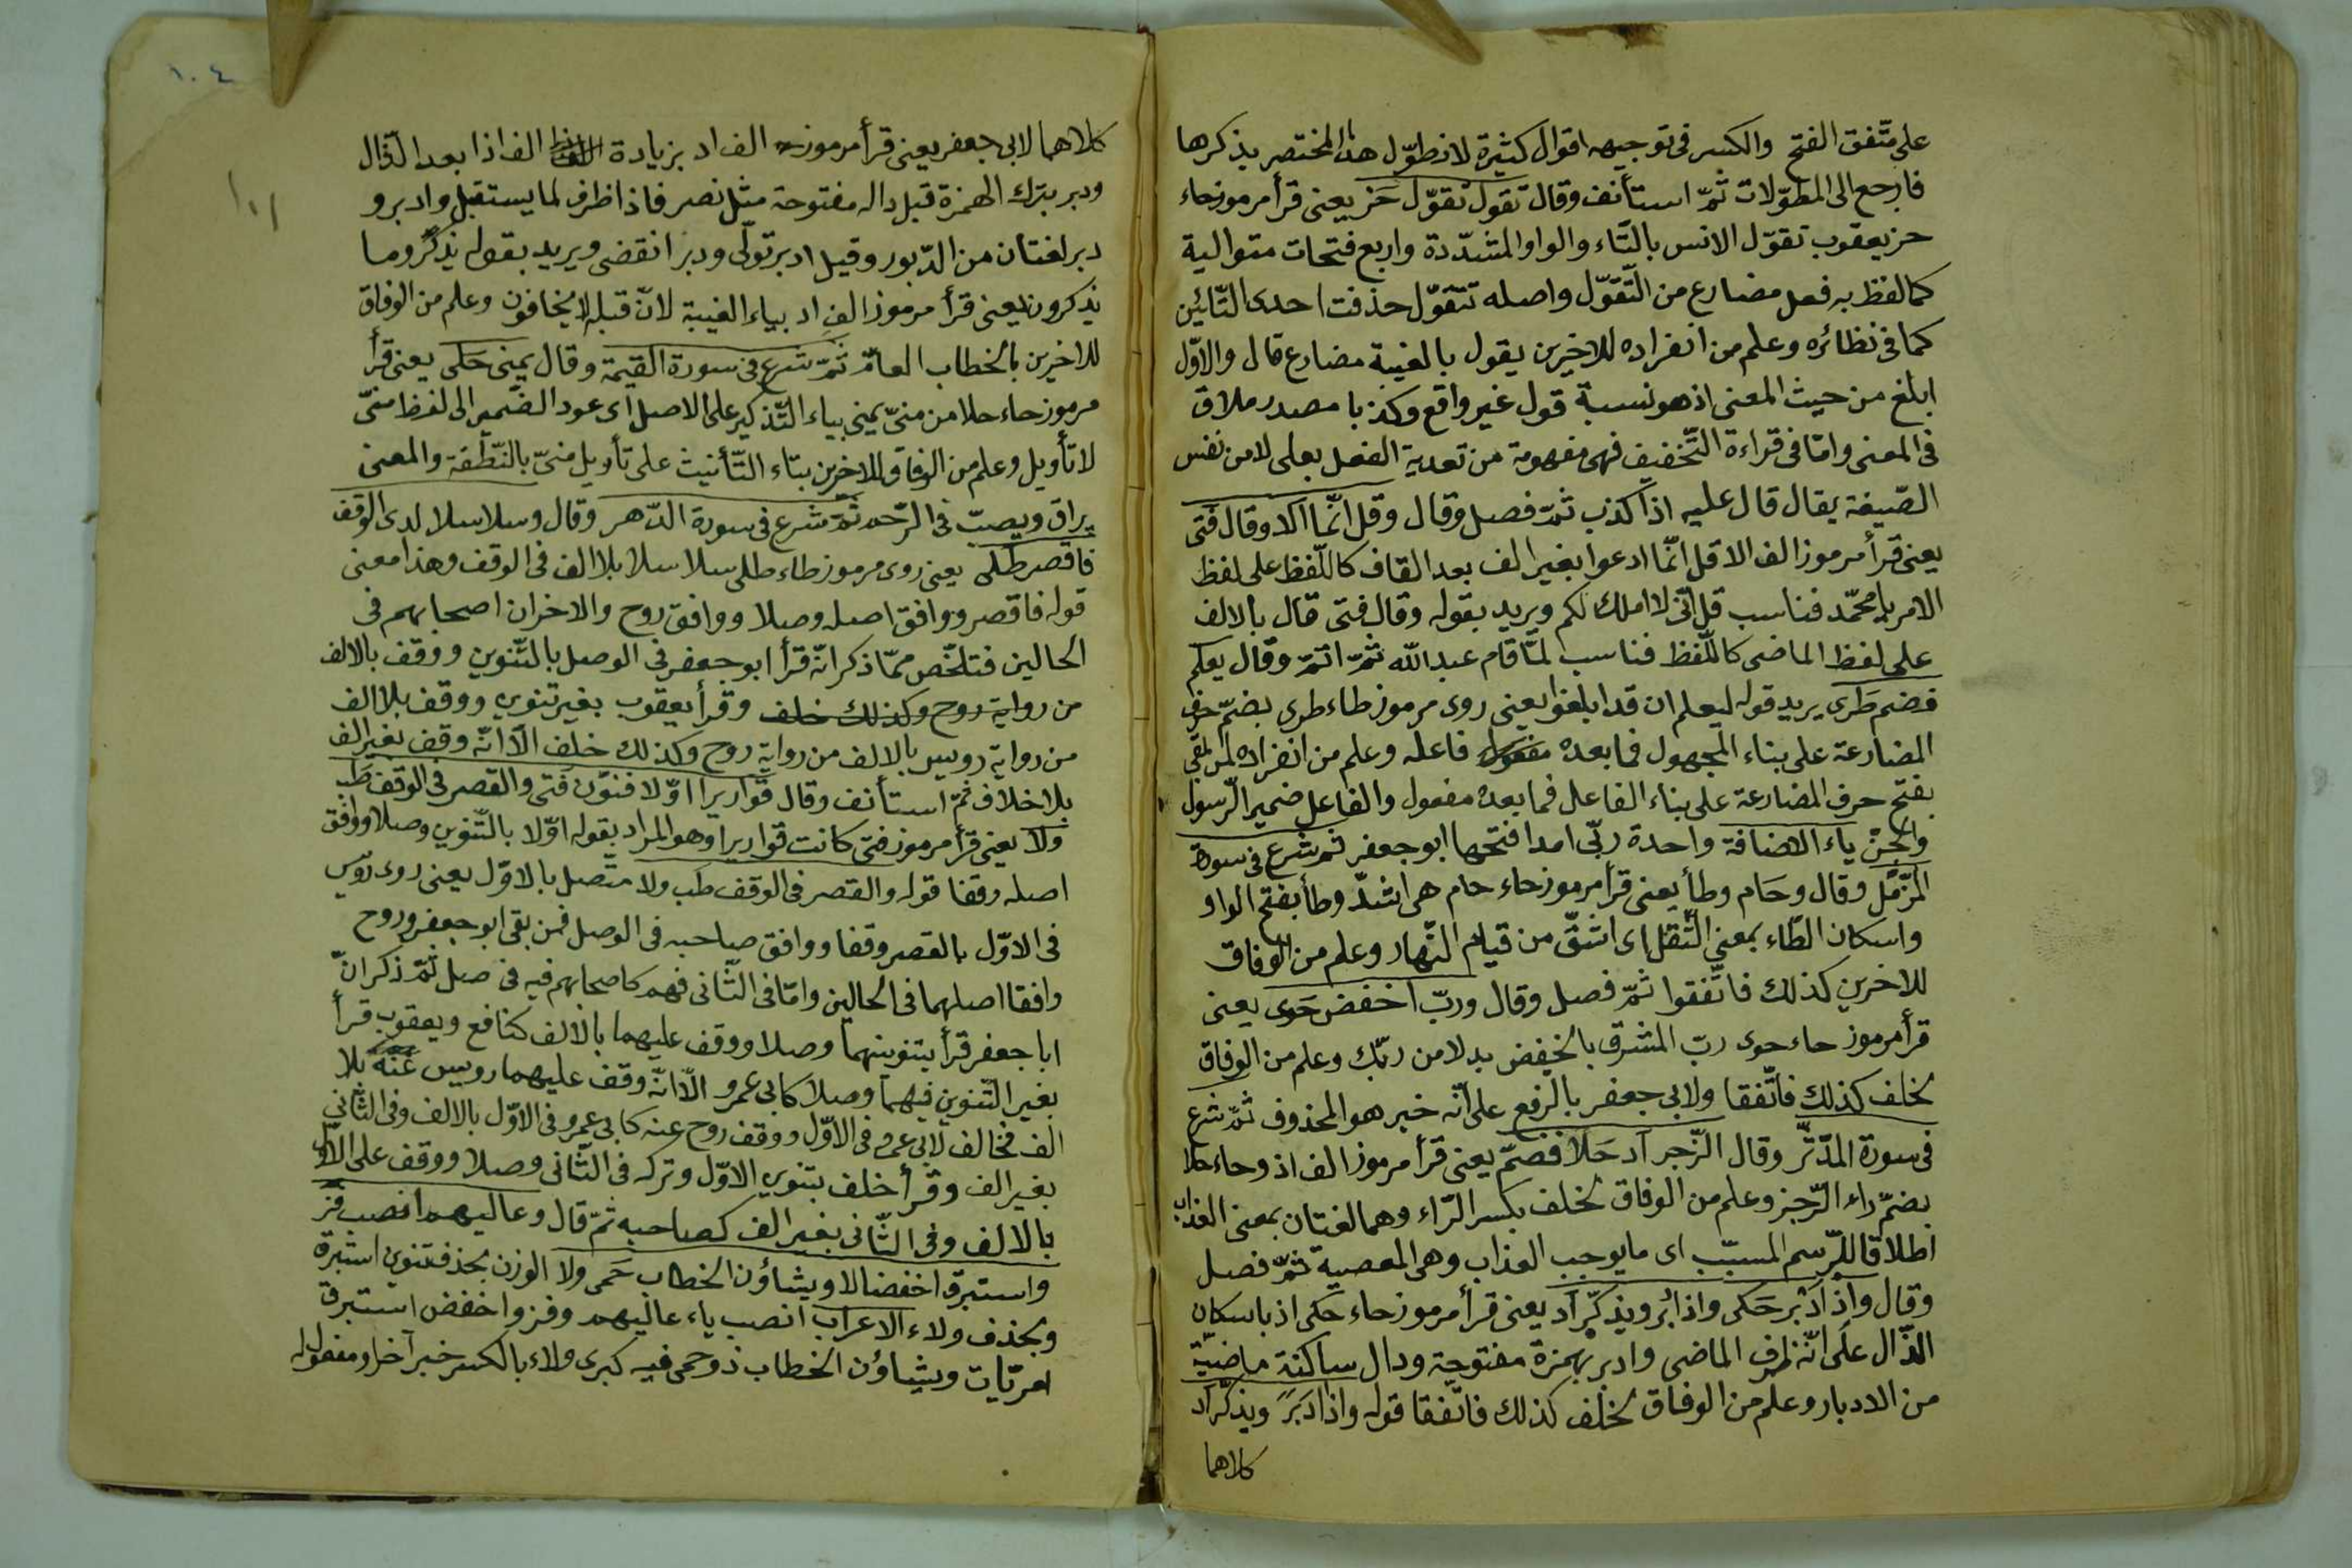 على متّفق الفتح والكسر فى توجيهه اقوال كثيرة لا نطوّل هذا المختصر بذكرها
فارجع الى المطوّلات ثمّ استأنف وقال تقول تقوّل حَز يعنى قرأ مرموز حاء
حز يعقوب تقوّل الانس بالتّاء والواو المشدّدة واربع فتحات متوالية
كما لفظ به فعل مضارع من التّقوّل واصله تتقوّل حذفت احدى التّائين
كما فى نظائره وعلم من انفراده للاخرين يقول بالغيبة مضارع قال والاوّل
ابلغ من حيث المعنى اذ هو نسبة قول غير واقع وكذبا مصدر ملاق
فى المعنى وامّا فى قراءة التّخفيف فهى مفهومة من تعدية الفعل بعلى لا من نفس
الصّيغة يقال قال عليه اذا كذب ثمّ فصل وقال وقل انّما الا وقال فتى
يعنى قرأ مرموز الف الا قل انّما ادعوا بغير الف بعد القاف كاللّفظ على لفظ
الامر يا محمّد فناسب قل انّى لا املك لكم ويريد بقوله وقال فتى قال بالالف
على لفظ الماضى كاللّفظ فناسب لمّا قام عبد الله ثمّ اتمّ وقال يعلم
فضم طَرى يريد قوله ليعلم ان قد ابلغوا يعنى روى مرموز طاء طرى بضمّ حرف
المضارعة على بناء المجهول فما بعده فاعله وعلم من انفراده لمن بقى
بفتح حرف المضارعة على بناء الفاعل فما بعده مفعول والفاعل ضمير الرّسول
والجنّ ياء الاضافة واحدة ربّى امدا فتحها ابو جعفر ثم شرع فى سورة
المزّمّل وقال وحَام وطأ يعنى قرأ مرموز حاء حام هى اشدّ وطأ بفتح الواو
واسكان الطّاء بمعنى الثّقل اى اشقّ من قيام النّهار وعلم من الوفاق
للاخرين كذلك فاتّفقوا ثمّ فصل وقال وربّ اخفض حَوى يعنى
قرأ مرموز حاء حوى ربّ المشرق بالخفض بدلا من ربّك وعلم من الوفاق
لخلف كذلك فاتّفقا ولابى جعفر بالرفع على انّه خبر هو المحذوف ثمّ شرع
فى سورة المدّثّر وقال الرّجز اد حَلا فضمّ يعنى قرأ مرموز الف اد وحاء حلا
بضمّ راء الرّجز وعلم من الوفاق لخلف بكسر الرّاء وهما لغتان بمعنى العذاب
اطلاقا للرسم المسبّب اى ما يوجب العذاب وهى المعصية ثمّ فصل
وقال واذ ادبر حَكى واذا دبر ويذكّر آد يعنى قرأ مرموز حاء حَكى اذ باسكان
الذّال على انّه ظرف الماضى وادبر بهمزة مفتوحة ودال ساكنة ماضيّة
من الادبار وعلم من الوفاق لخلف كذلك فاتّفقا قوله واذا دبر ويذكّر آد
كلاهما
١٠٤
١٠١
كلاهما لابى جعفر يعنى قرأ مرموز الف اد بزيادة الف اذا بعد الذّال
ودبر بترك الهمزة قبل داله مفتوحة مثل نصر فاذا ظرف لما يستقبل وادبر و
دبر لغتان من الدّبور وقيل ادبر تولّى ودبر انقضى ويريد بقوله يذكّر وما
يذكرون يعنى قرأ مرموز الف اد بياء الغيبة لانّ قبله لا يخافون وعلم من الوفاق
للاخرين بالخطاب العامّ ثمّ شرع فى سورة القيمة وقال يمنى حَلى يعنى قرأ
مرموز حاء حلا من منىّ يمنى بياء التّذكير على الاصل اى عود الضّمير الى لفظ منىّ
لا تأويل وعلم من الوفاق للاخرين بتاء التّأنيث على تأويل منىّ بالنّطفة والمعنى
يراق ويصبّ فى الرّحم ثمّ شرع فى سورة الدّهر وقال وسلاسلا لدى الوقف
فاقصر طلى يعنى روى مرموز طاء طلى سلاسلا بلا الف فى الوقف وهذا معنى
قوله فاقصر ووافق اصله وصلا ووافق روح والاخران اصحابهم فى
الحالين فتلخّص ممّا ذكر انّه قرأ ابو جعفر فى الوصل بالتّنوين ووقف بالالف
من رواية روح وكذلك خلف وقرأ يعقوب بغير تنوين ووقف بلا الف
من رواية رويس بالالف من رواية روح وكذلك خلف الّا انّه وقف بغير الف
بلا خلاف ثمّ استأنف وقال قواريرا اوّلا فنوّن فتى والقصر فى الوقف طب
ولا يعنى قرأ مرموز فتى كانت قواريرا وهو المراد بقوله اوّلا بالتّنوين وصلا ووافق
اصله وقفا قوله والقصر فى الوقف طب ولا متّصل بالاوّل يعنى روى رويس
فى الاوّل بالقصر وقفا ووافق صاحبه فى الوصل فمن بقى ابو جعفر وروح
وافقا اصلهما فى الحالين وامّا فى الثّانى فهم كاصحابهم فيه فى صل ثمّ ذكر انّ
ابا جعفر قرأ بتنوينهما وصلا ووقف عليهما بالالف كنافع ويعقوب قرأ
بغير التّنوين فيهما وصلا كابى عمرو الّا انّه وقف عليهما رويس عنه بلا
الف فخالف لابى عمرو فى الاوّل ووقف روح عنه كابى عمرو فى الاوّل بالالف وفى الثّانى
بغير الف وقرأ خلف بتنوين الاوّل وتركه فى الثّانى وصلا ووقف على الاوّل
بالالف وفى الثّانى بغير الف كصاحبه ثمّ قال وعاليهم انصب فز
واستبرق اخفضا الا ويشاؤن الخطاب حَمى ولا الوزن بحذف تنوين استبرق
وبحذف ولاء الاعراب انصب ياء عاليهم وفز واخفض استبرق
ويشاؤن الخطاب ذو حمى فيه كبرى ولاء بالكسر خبر آخر او مفعول له